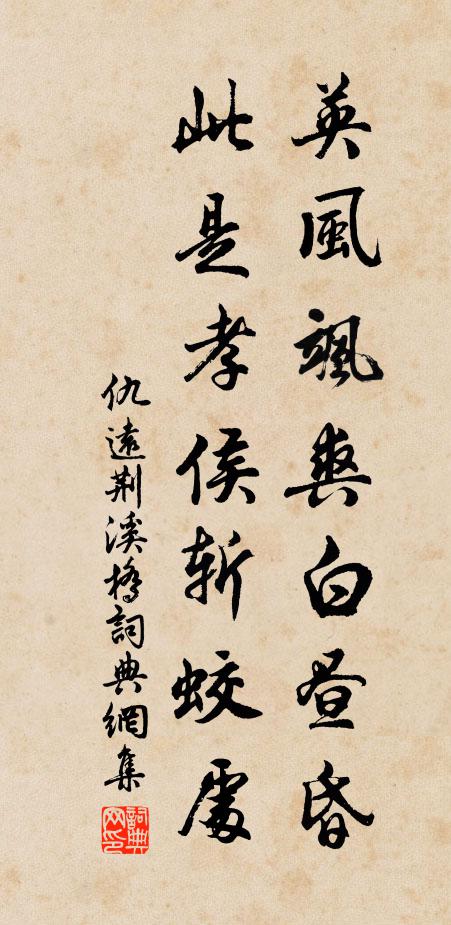 英風颯爽白晝昏
此是孝侯斬蛟處
仇遠荆溪橋詞典網集
詞典網印